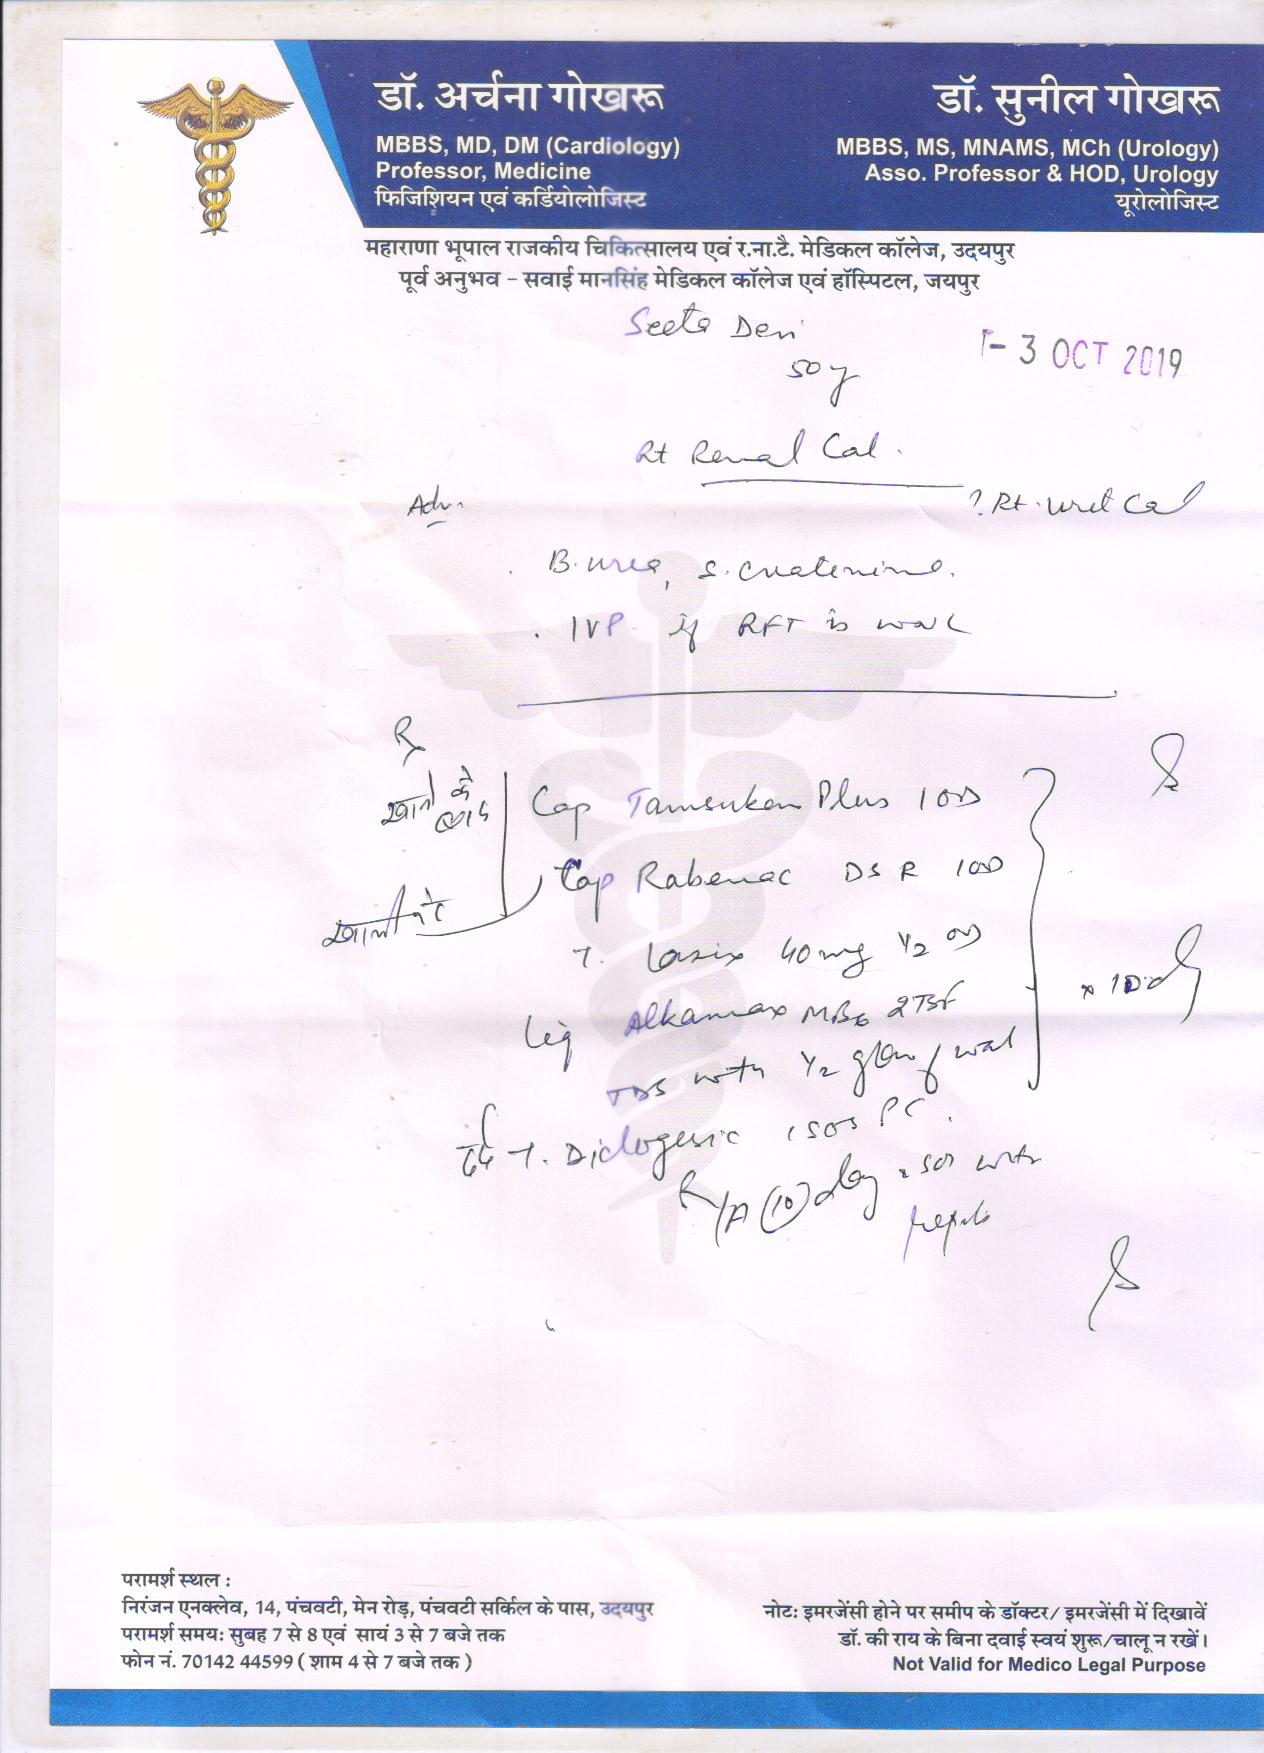 डॉ. अर्चना गोखरू
MBBS, MD, DM (Cardiology)
Professor, Medicine
फिजिशियन एवं कर्डियोलोजिस्ट
डॉ. सुनील गोखरू
MBBS, MS, MNAMS, MCh (Urology)
Asso. Professor & HOD, Urology
यूरोलोजिस्ट
महाराणा भूपाल राजकीय चिकित्सालय एवं र.ना.टै. मेडिकल कॉलेज, उदयपुर
पूर्व अनुभव – सवाई मानसिंह मेडिकल कॉलेज एवं हॉस्पिटल, जयपुर
Seeta Devi
- 3 OCT 2019
50 y
Rt Renal Cal.
Adv.
? Rt. Uret Cal
B. urea, S. Creatinine.
. IVP if RFT is
Rx
खाने के बाद
Cap Tamsukem Plus 1 OD
Cap Rabenac DSR 1 OD
खाली पेट
T. Lasix 40 mg 1/2 OD
Liq Alkamax MB6 2 TSF
x 10 d
TDS with 1/2 glass of wat
दर्द T. Diclogesic 1 SOS PC.
R/A (10) day SOS with
परामर्श स्थल :
निरंजन एनक्लेव, 14, पंचवटी, मेन रोड़, पंचवटी सर्किल के पास, उदयपुर
परामर्श समयः सुबह 7 से 8 एवं सायं 3 से 7 बजे तक
फोन नं. 70142 44599 ( शाम 4 से 7 बजे तक )
नोटः इमरजेंसी होने पर समीप के डॉक्टर/ इमरजेंसी में दिखावें
डॉ. की राय के बिना दवाई स्वयं शुरू/चालू न रखें।
Not Valid for Medico Legal Purpose